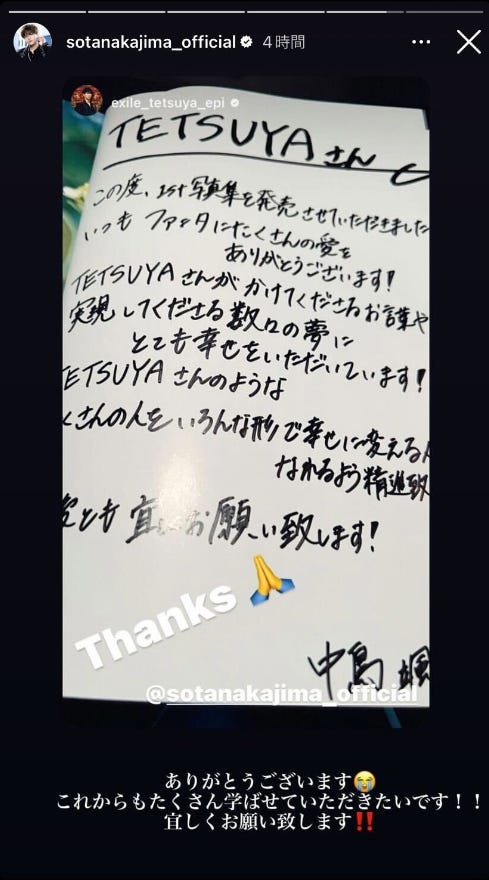 sotanakajima_official 4時間
exile_tetsuya_epi
TETSUYAさんへ
この度、1st写真集を発売させていただきました
いつも ファンタにたくさんの愛を
ありがとうございます!
TETSUYAさんが かけてくださるお言葉や
実現してくださる数々の夢に
とても幸せをいただいています!
TETSUYAさんのような
くさんの人をいろんな形で幸せに変える
なれるよう精進致
とも 宜しくお願い致します!
Thanks 🙏
中島 颯
@sotanakajima_official
ありがとうございます😭
これからもたくさん学ばせていただきたいです！！
宜しくお願い致します‼️